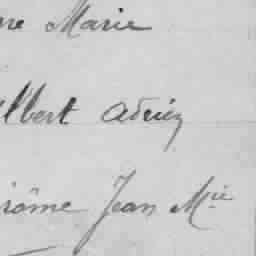 ne Marie
lbert Adrien
rôme Jean Mie